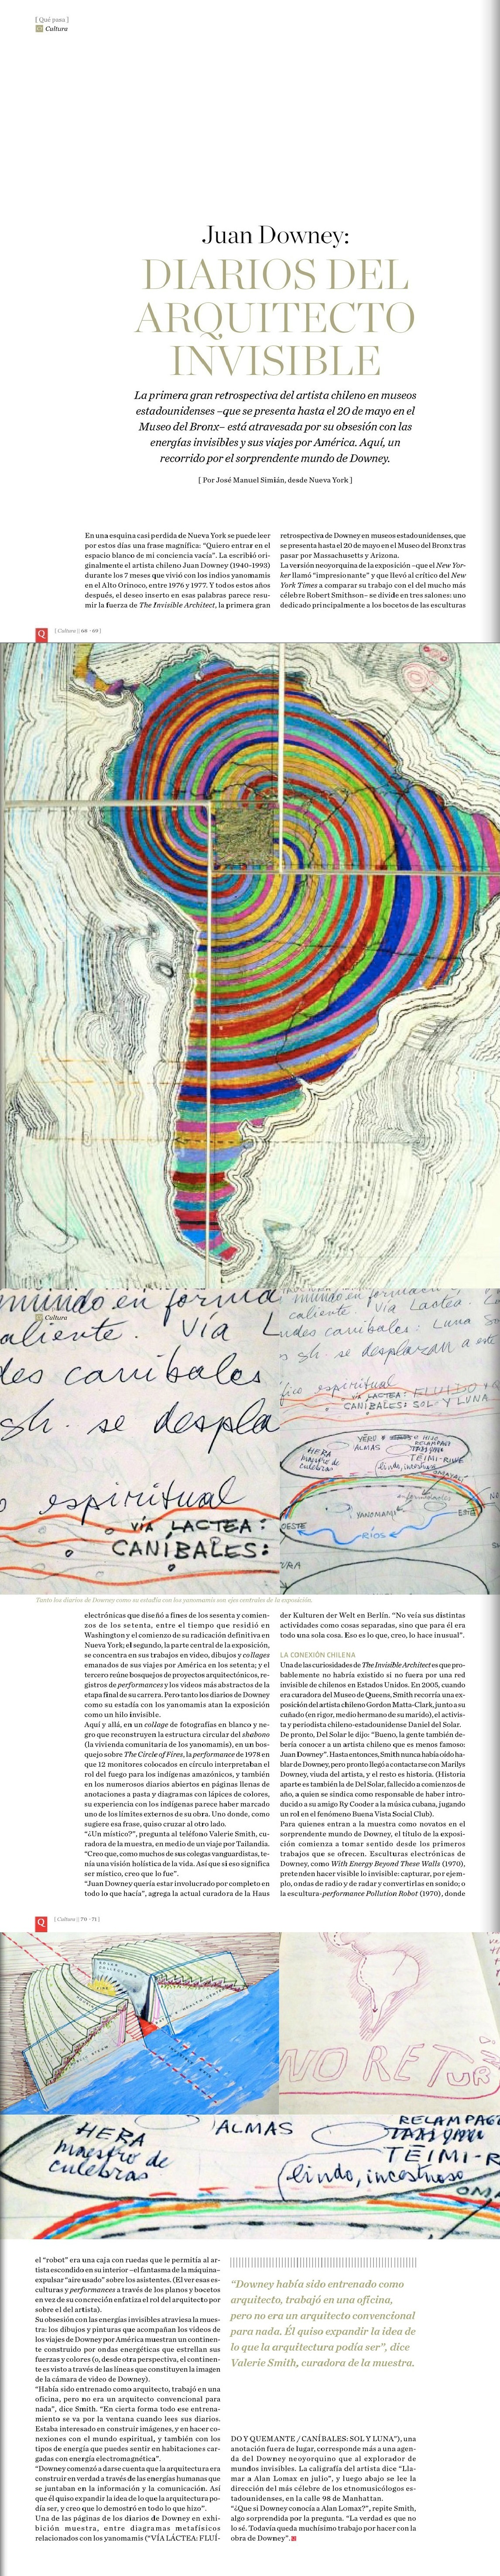 [ Qué pasa ]
Cultura
Juan Downey:
DIARIOS DEL
ARQUITECTO
INVISIBLE
La primera gran retrospectiva del artista chileno en museos
estadounidenses –que se presenta hasta el 20 de mayo en el
Museo del Bronx– está atravesada por su obsesión con las
energías invisibles y sus viajes por América. Aquí, un
recorrido por el sorprendente mundo de Downey.
[ Por José Manuel Simián, desde Nueva York ]
En una esquina casi perdida de Nueva York se puede leer
por estos días una frase magnífica: “Quiero entrar en el
espacio blanco de mi conciencia vacía”. La escribió ori-
ginalmente el artista chileno Juan Downey (1940-1993)
durante los 7 meses que vivió con los indios yanomamis
en el Alto Orinoco, entre 1976 y 1977. Y todos estos años
después, el deseo inserto en esas palabras parece resu-
mir la fuerza de The Invisible Architect, la primera gran
retrospectiva de Downey en museos estadounidenses, que
se presenta hasta el 20 de mayo en el Museo del Bronx tras
pasar por Massachusetts y Arizona.
La versión neoyorquina de la exposición –que el New Yor-
ker llamó “impresionante” y que llevó al crítico del New
York Times a comparar su trabajo con el del mucho más
célebre Robert Smithson– se divide en tres salones: uno
dedicado principalmente a los bocetos de las esculturas
Q
[ Cultura || 68 · 69 ]
Cultura
mundo en forma
caliente. Vía L
des caníbales
sh. se despla
espiritual
VÍA LACTEA:
CANÍBALES:
mundo en formación
caliente. Vía Lactea.
udes caníbales: Luna
sh. se desplazan a este
fico espiritual
VÍA LACTEA: FLUIDO
CANIBALES: SOL Y LUNA
YERO
HIJO
HERA
maestro de
culebras
ALMAS
RELAMPAGO
TEIMI-RIWE
lindo, incestuoso
OMAYALI
OESTE
YANOMAMI
ESTE
RÍOS
Tanto los diarios de Downey como su estadía con los yanomamis son ejes centrales de la exposición.
electrónicas que diseñó a fines de los sesenta y comien-
zos de los setenta, entre el tiempo que residió en
Washington y el comienzo de su radicación definitiva en
Nueva York; el segundo, la parte central de la exposición,
se concentra en sus trabajos en video, dibujos y collages
emanados de sus viajes por América en los setenta; y el
tercero reúne bosquejos de proyectos arquitectónicos, re-
gistros de performances y los videos más abstractos de la
etapa final de su carrera. Pero tanto los diarios de Downey
como su estadía con los yanomamis atan la exposición
como un hilo invisible.
Aquí y allá, en un collage de fotografías en blanco y ne-
gro que reconstruyen la estructura circular del shabono
(la vivienda comunitaria de los yanomamis), en un bos-
quejo sobre The Circle of Fires, la performance de 1978 en
que 12 monitores colocados en círculo interpretaban el
rol del fuego para los indígenas amazónicos, y también
en los numerosos diarios abiertos en páginas llenas de
anotaciones a pasta y diagramas con lápices de colores,
su experiencia con los indígenas parece haber marcado
uno de los límites externos de su obra. Uno donde, como
sugiere esa frase, quiso cruzar al otro lado.
“¿Un místico?”, pregunta al teléfono Valerie Smith, cu-
radora de la muestra, en medio de un viaje por Tailandia.
“Creo que, como muchos de sus colegas vanguardistas, te-
nía una visión holística de la vida. Así que si eso significa
ser místico, creo que lo fue”.
“Juan Downey quería estar involucrado por completo en
todo lo que hacía”, agrega la actual curadora de la Haus
der Kulturen der Welt en Berlín. “No veía sus distintas
actividades como cosas separadas, sino que para él era
todo una sola cosa. Eso es lo que, creo, lo hace inusual”.
LA CONEXIÓN CHILENA
Una de las curiosidades de The Invisible Architect es que pro-
bablemente no habría existido si no fuera por una red
invisible de chilenos en Estados Unidos. En 2005, cuando
era curadora del Museo de Queens, Smith recurría una ex-
posición del artista chileno Gordon Matta-Clark, junto a su
cuñado (en rigor, medio hermano de su marido), el activis-
ta y periodista chileno-estadounidense Daniel del Solar.
De pronto, Del Solar le dijo: “Bueno, la gente también de-
bería conocer a un artista chileno que es menos famoso:
Juan Downey”. Hasta entonces, Smith nunca había oído ha-
blar de Downey, pero pronto llegó a contactarse con Marilys
Downey, viuda del artista, y el resto es historia. (Historia
aparte es también la de Del Solar, fallecido a comienzos de
año, a quien se sindica como responsable de haber intro-
ducido a su amigo Ry Cooder a la música cubana, jugando
un rol en el fenómeno Buena Vista Social Club).
Para quienes entran a la muestra como novatos en el
sorprendente mundo de Downey, el título de la exposi-
ción comienza a tomar sentido desde los primeros
trabajos que se ofrecen. Esculturas electrónicas de
Downey, como With Energy Beyond These Walls (1970),
pretenden hacer visible lo invisible: capturar, por ejem-
plo, ondas de radio y de radar y convertirlas en sonido; o
la escultura-performance Pollution Robot (1970), donde
Q
[ Cultura || 70 · 71 ]
SOLAR COLLECTORS
NO RETUR
HERA
maestro de
culebras
ALMAS
RELAMPAGO
TEIMI-R
lindo, incestuoso
OMA
el “robot” era una caja con ruedas que le permitía al ar-
tista escondido en su interior –el fantasma de la máquina–
expulsar “aire usado” sobre los asistentes. (El ver esas es-
culturas y performances a través de los planos y bocetos
en vez de su concreción enfatiza el rol del arquitecto por
sobre el del artista).
Su obsesión con las energías invisibles atraviesa la mues-
tra: los dibujos y pinturas que acompañan los videos de
los viajes de Downey por América muestran un continen-
te construido por ondas energéticas que estrellan sus
fuerzas y colores (o, desde otra perspectiva, el continen-
te es visto a través de las líneas que constituyen la imagen
de la cámara de video de Downey).
“Había sido entrenado como arquitecto, trabajó en una
oficina, pero no era un arquitecto convencional para
nada”, dice Smith. “En cierta forma todo ese entrena-
miento se va por la ventana cuando lees sus diarios.
Estaba interesado en construir imágenes, y en hacer co-
nexiones con el mundo espiritual, y también con los
tipos de energía que puedes sentir en habitaciones car-
gadas con energía electromagnética”.
“Downey comenzó a darse cuenta que la arquitectura era
construir en verdad a través de las energías humanas que
se juntaban en la información y la comunicación. Así
que él quiso expandir la idea de lo que la arquitectura po-
día ser, y creo que lo demostró en todo lo que hizo”.
Una de las páginas de los diarios de Downey en exhi-
bición muestra, entre diagramas metafísicos
relacionados con los yanomamis (“VÍA LÁCTEA: FLUÍ-
“Downey había sido entrenado como
arquitecto, trabajó en una oficina,
pero no era un arquitecto convencional
para nada. Él quiso expandir la idea de
lo que la arquitectura podía ser”, dice
Valerie Smith, curadora de la muestra.
DO Y QUEMANTE / CANÍBALES: SOL Y LUNA”), una
anotación fuera de lugar, corresponde más a una agen-
da del Downey neoyorquino que al explorador de
mundos invisibles. La caligrafía del artista dice “Lla-
mar a Alan Lomax en julio”, y luego abajo se lee la
dirección del más célebre de los etnomusicólogos es-
tadounidenses, en la calle 98 de Manhattan.
“¿Que si Downey conocía a Alan Lomax?”, repite Smith,
algo sorprendida por la pregunta. “La verdad es que no
lo sé. Todavía queda muchísimo trabajo por hacer con la
obra de Downey”.